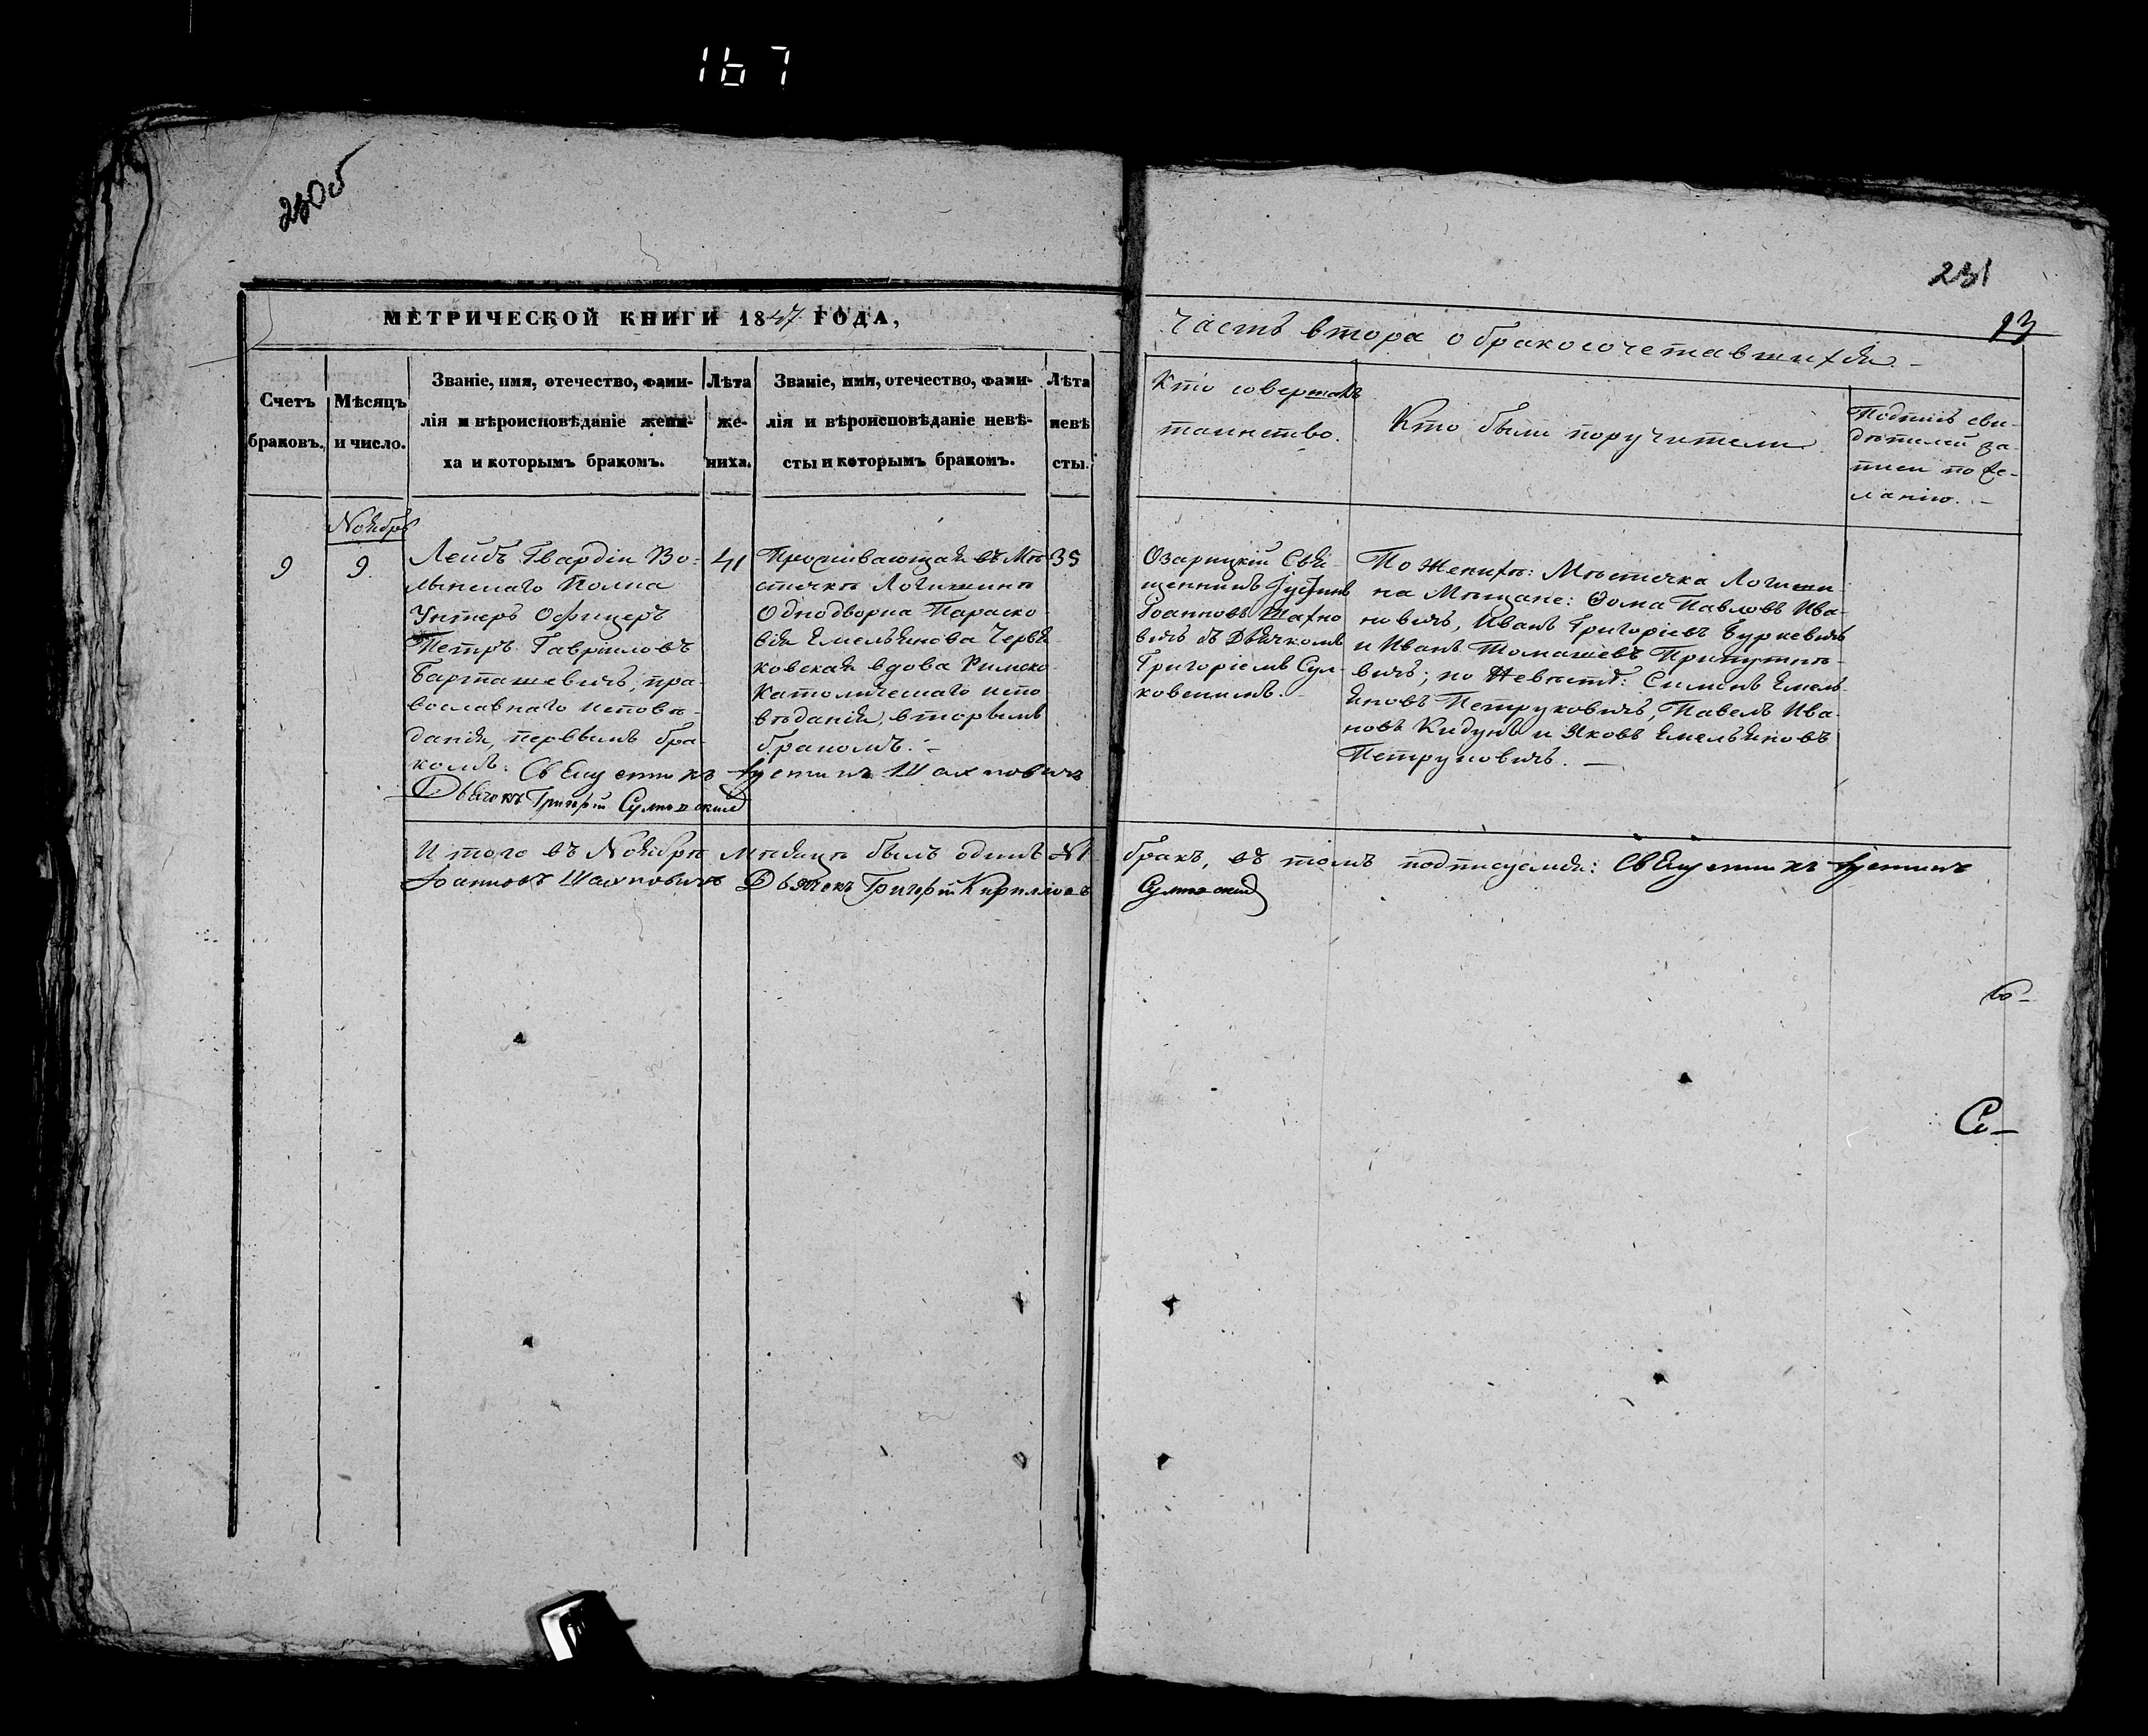 167
230об
231
93
МЕТРИЧЕСКОЙ КНИГИ 1847 ГОДА,
Часть втора о бракосочетавшихся.
Счетъ браковъ.
Мѣсяцъ и число.
Званіе, имя, отечество, фами-
лія и вѣроисповѣданіе жени-
ха и которымъ бракомъ.
Лѣта
же-
ниха.
Званіе, имя, отечество, фами-
лія и вѣроисповѣданіе невѣ-
сты и которымъ бракомъ.
Лѣта
невѣ
сты.
Кто совершалъ
таинство.
Кто были поручители
Подпись сви-
дѣтелей за-
писи по же-
ланію.
Ноябрь
9
9.
Лейбъ Гвардіи Во-
лынскаго Полка
Унтеръ Офицеръ
Петръ Гавриловъ
Барташевичъ, пра-
вославнаго исповѣ-
данія, первымъ бра-
комъ.
41
Проживающая въ Мѣ
стечкѣ Логишинѣ
Однодворка Параско
вія Емельянова Червя
ковская вдова Римско-
Католическаго испо
вѣданія, вторымъ
бракомъ.
35
Озарицкій Свя-
щенникъ Іустинъ
Іоанновъ Шахно
вичъ съ Дьячкомъ
Григоріемъ Сул-
ковскимъ.
По Женихѣ: Мѣстечка Логиши
на Мѣщане: Ѳома Павловъ Ива-
новичъ, Иванъ Григоріевъ Буркевичъ
и Иванъ Томашевъ Припутне-
вичъ; по Невѣстѣ: Симонъ Емель
яновъ Петруковичъ, Павелъ Ива-
новъ Кидунъ и Яковъ Емельяновъ
Петруковичъ.
Священникъ Іустинъ Шахновичъ
Дьячокъ Григорій Сулковскій
Итого въ Ноябрѣ мѣсяцѣ былъ одинъ №1 бракъ, въ томъ подписуемся: Священникъ Іустинъ
Іоанновъ Шахновичъ Дьячокъ Григорій Кирилловъ Сулковскій
Со-